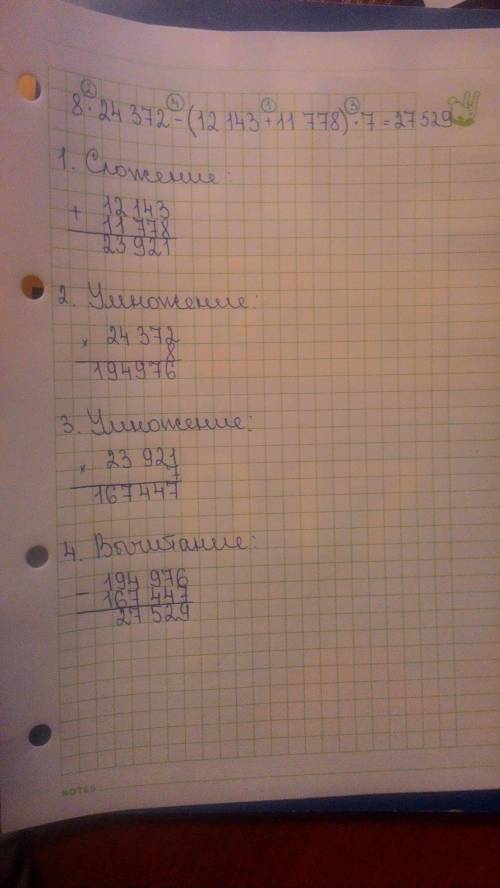 ② ④ ① ③
8 · 24 372 - (12 143 + 11 778) · 7 = 27 529
1. Сложение:
+ 12 143
11 778
23 921
2. Умножение:
× 24 372
8
194976
3. Умножение:
× 23 921
7
167447
4. Вычитание:
- 194 976
167 447
27 529
NOTES